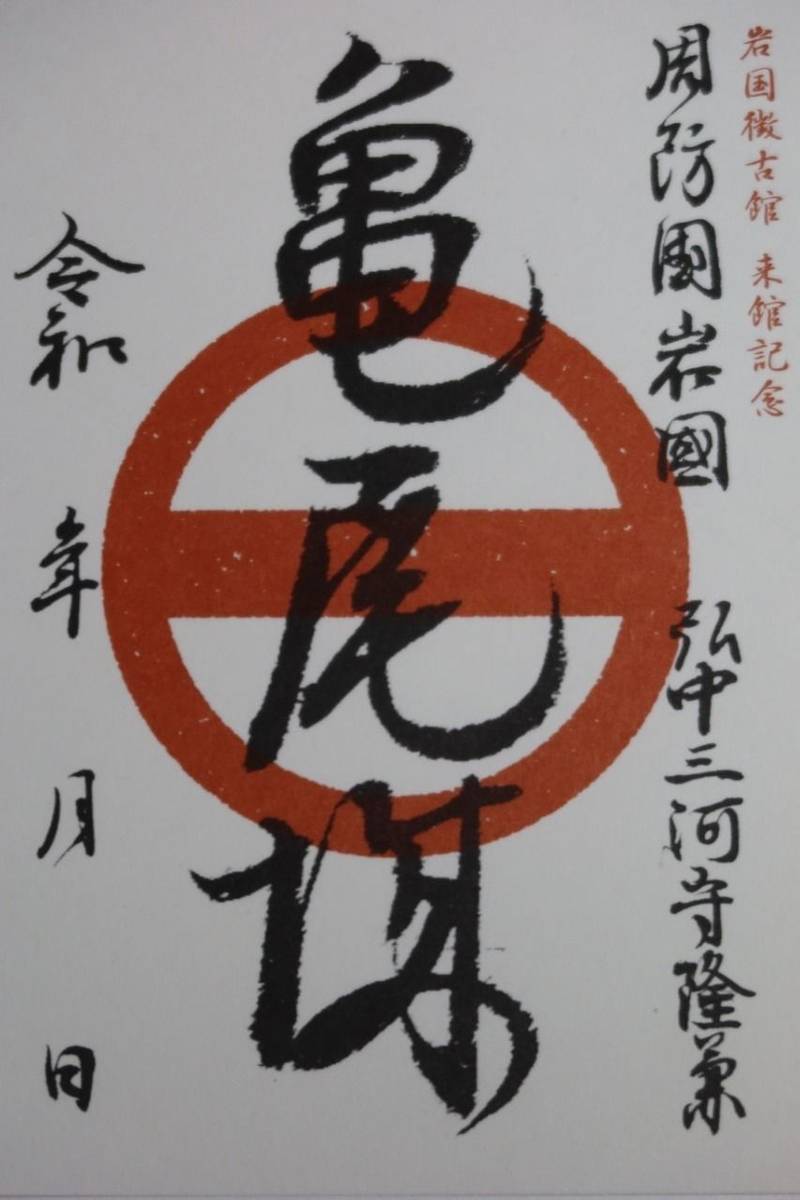 岩国徴古館 来館記念
周防國岩國 弘中三河守隆兼
亀尾城
令和 年 月 日